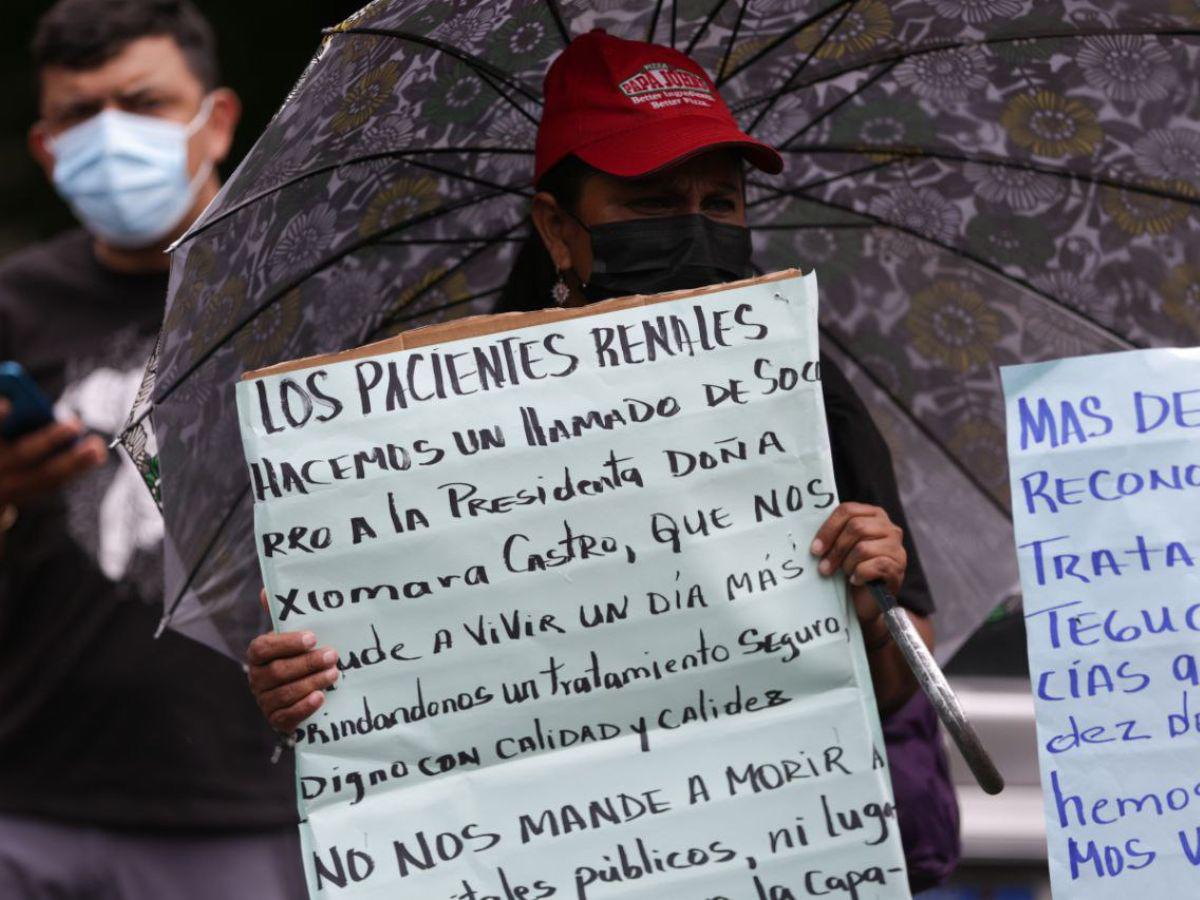 PAPA JOHN'S
Better Ingredients.
Better Pizza.
LOS PACIENTES RENALES
HACEMOS UN llAMADO DE SOCO
RRO A lA PRESIDENTA DOÑA
XIOMARA CASTRO, QUE NOS
ude A ViViR UN DÍA MÁS
rindandonos un tratamiento Seguro,
Digno CON CALIDAD y CALIDEZ
NO NOS MANDE A MORIR A
tales públicos, ni luga
la Capa-
MAS DE
RECONO
TRATA
TEGUC
CÍAS
dez
hemos
MOS